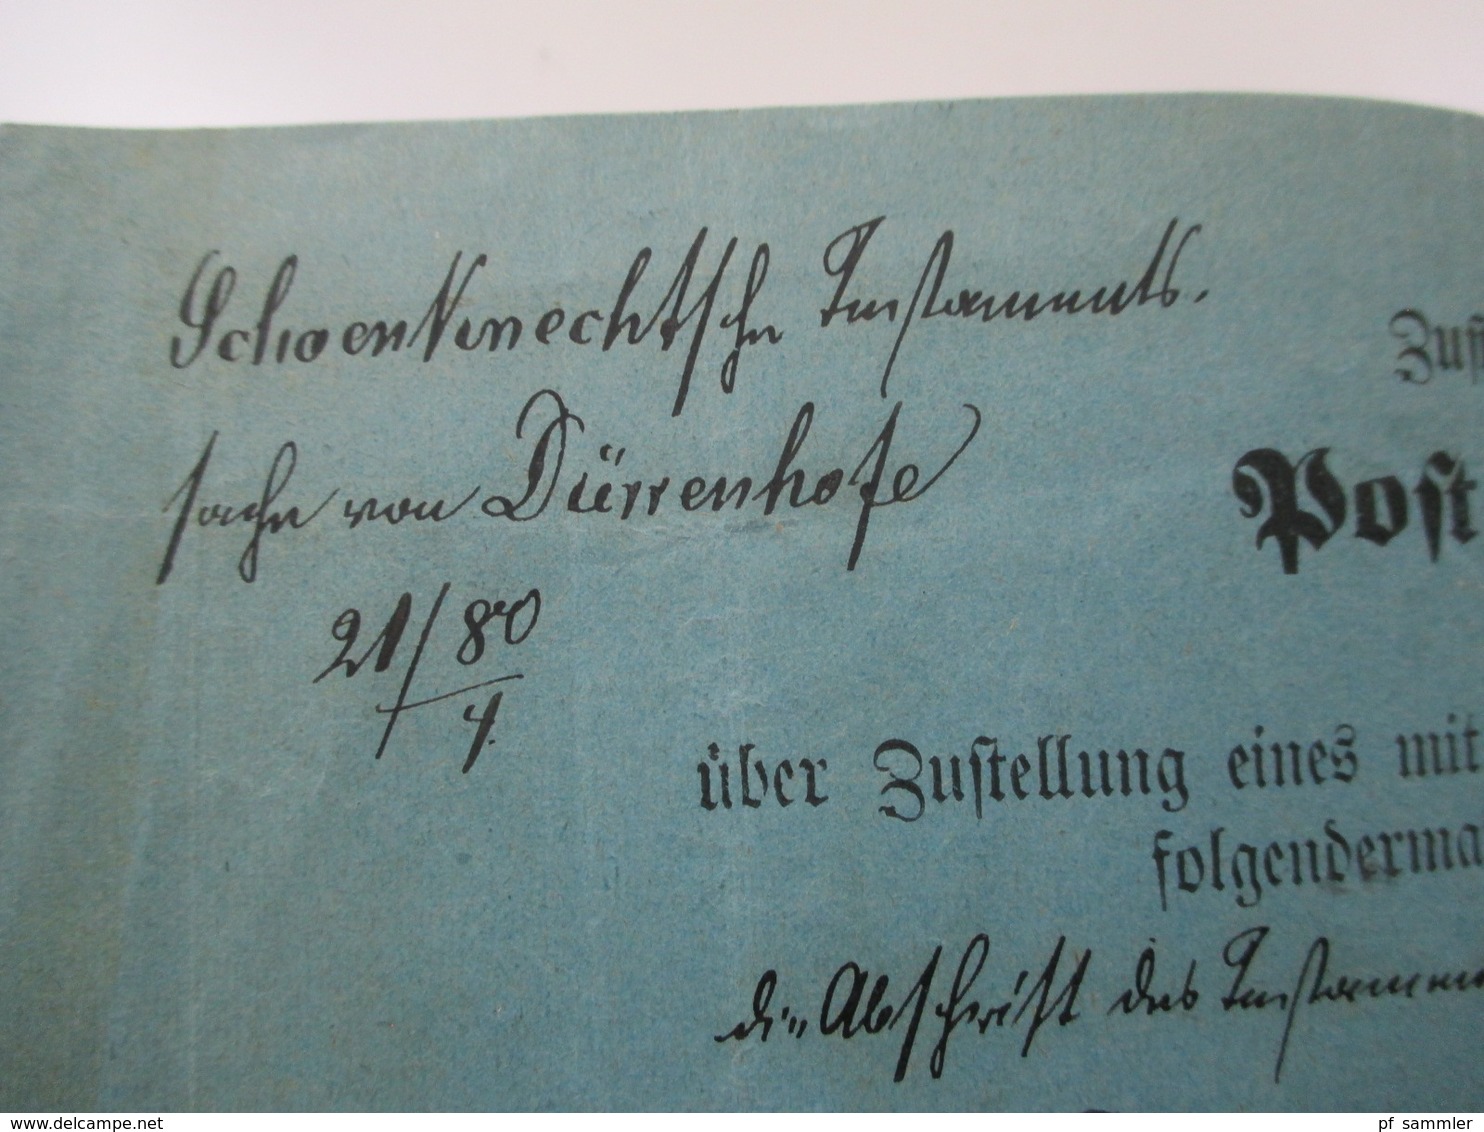 Schoenknechtsche Testaments-
sache von Dürrenhofe
21/80
4.
Zust
Post
über Zustellung eines mit
folgenderma
die Abschrift des Testamen
www.delcampe.net
pf_sammler